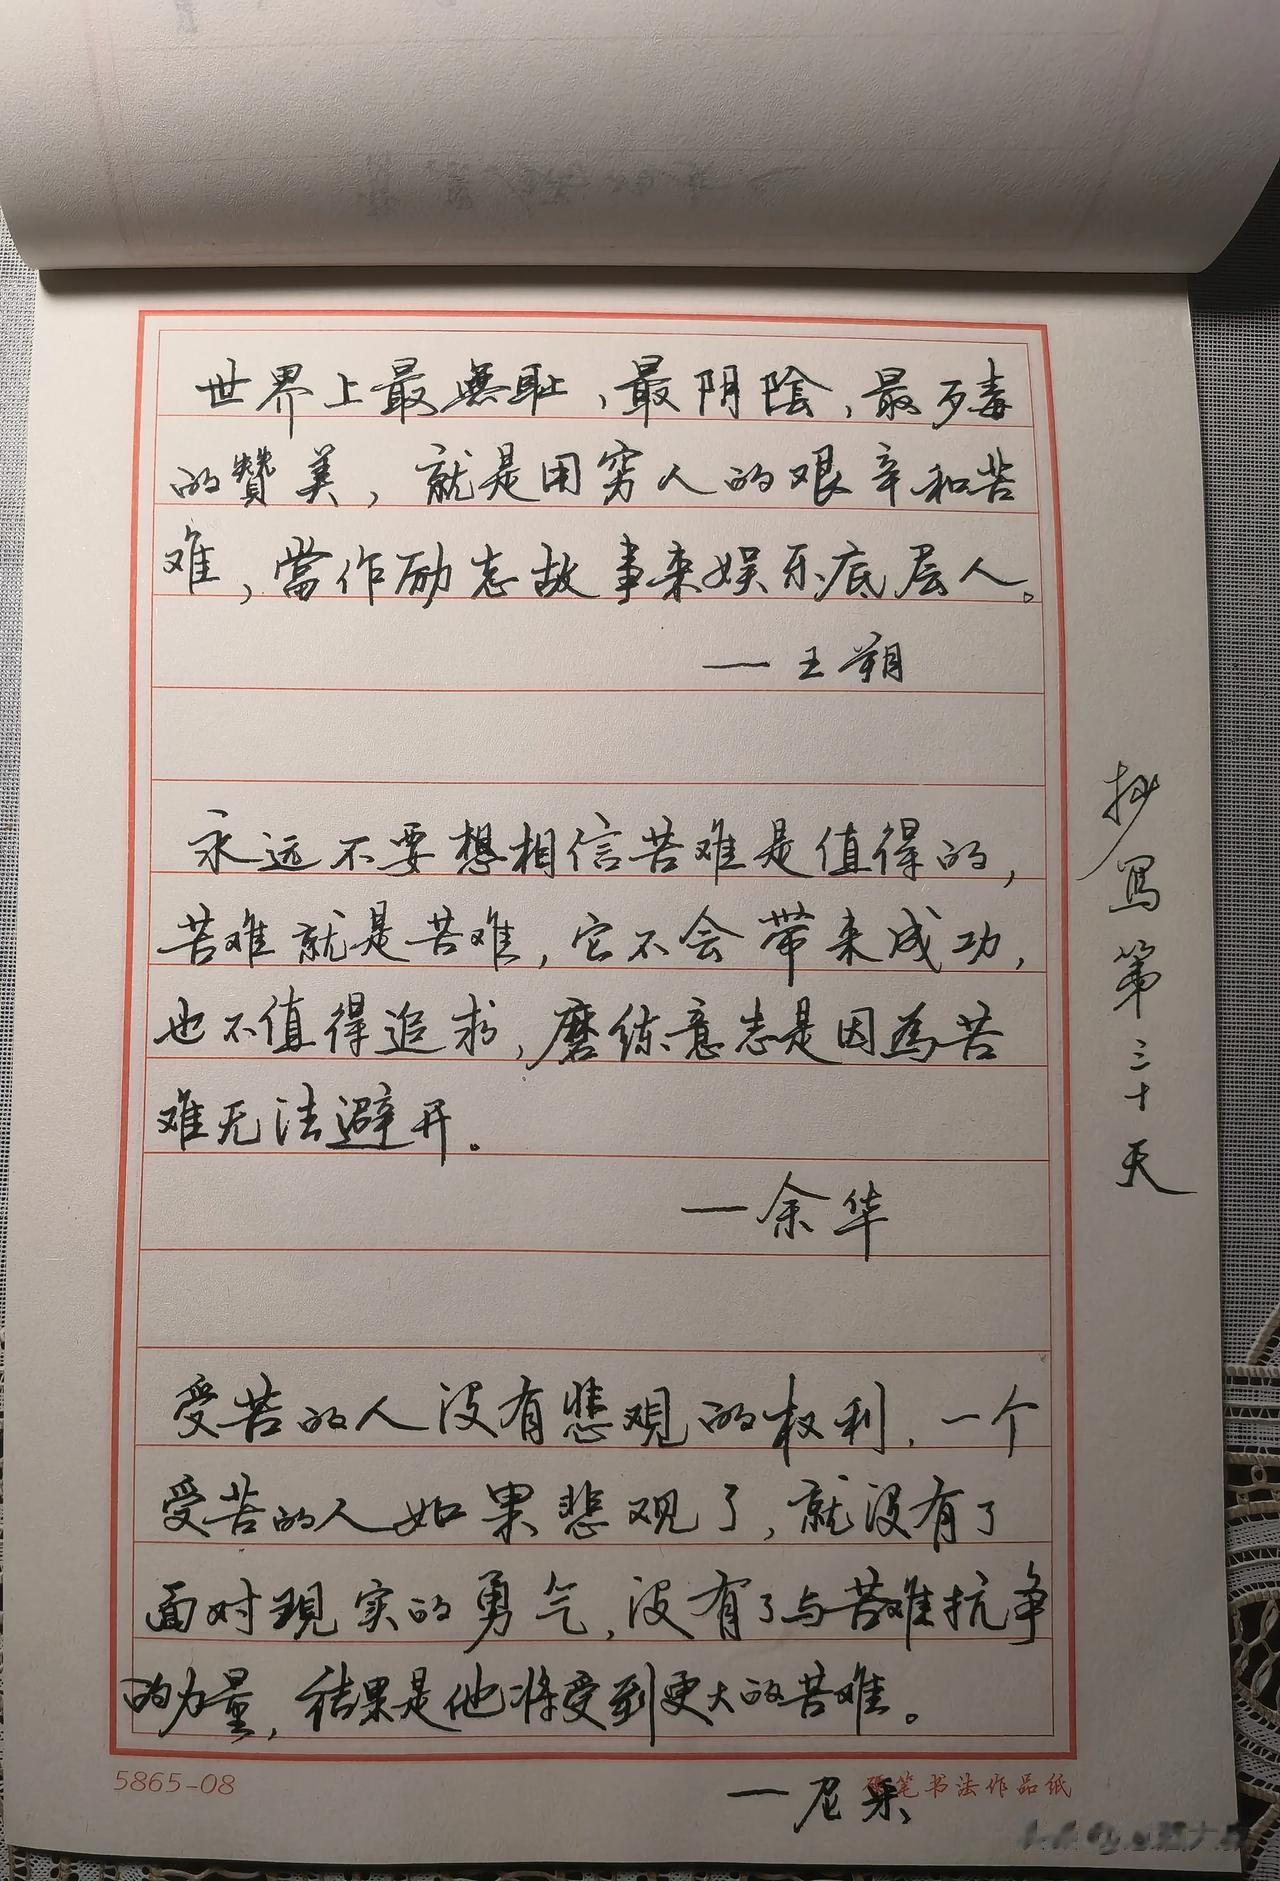 世界上最無耻,最阴陰,最歹毒
的贊美,就是用穷人的艰辛和苦
难,當作励志故事来娱乐底层人。
一王朔
永远不要想相信苦难是值得的,
苦难就是苦难,它不会带来成功,
也不值得追求,磨练意志是因為苦
难无法避开。
一余华
受苦的人没有悲观的权利,一个
受苦的人如果悲观了,就没有了
面对現实的勇气,没有了与苦难抗争
的力量,结果是他将受到更大的苦难。
一尼采
抄寫第三十天
5865-08
硬笔书法作品纸